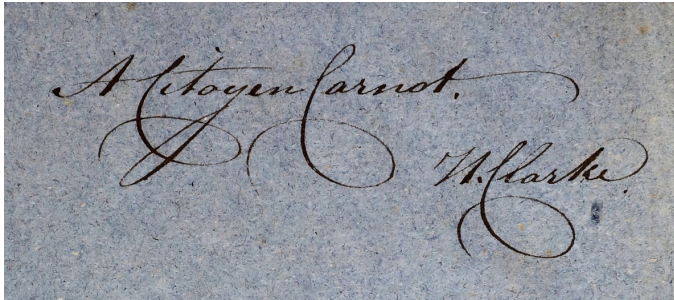 A Citoyen Carnot.
H. Clarke.